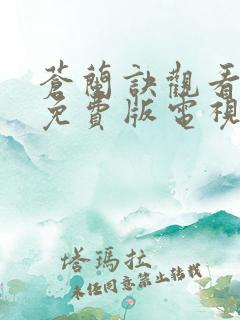 蒼蘭訣觀看
免費版電視
塔瑪拉
未經同意禁止轉載